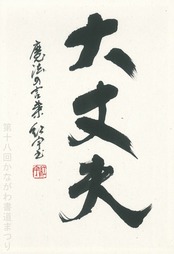 大丈夫
魔法の言葉
第十八回かながわ書道まつり